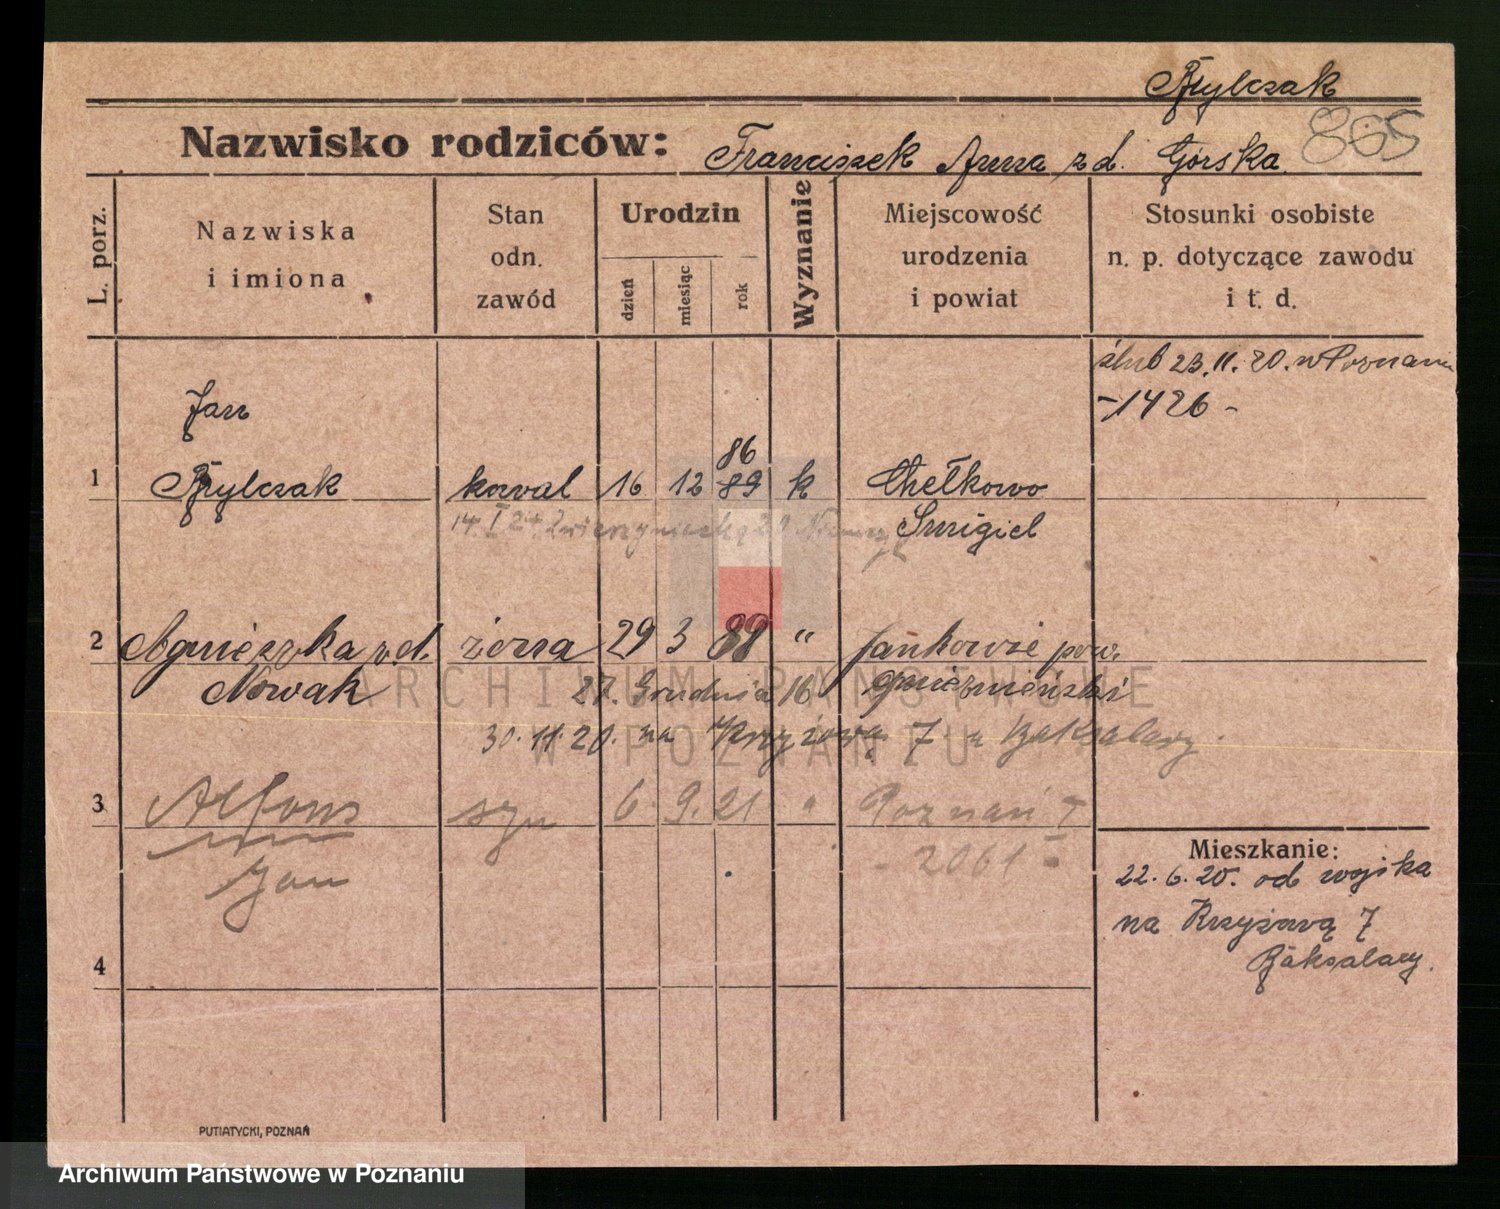 Brylczak
Nazwisko rodziców: Franciszek Anna z d. Górska 865
L. porz.
Nazwiska
i imiona
Stan
odn.
zawód
Urodzin
dzień
miesiąc
rok
Wyznanie
Miejscowość
urodzenia
i powiat
Stosunki osobiste
n. p. dotyczące zawodu
i t. d.
ślub 23.11.20. w Poznaniu
-1426-
Jan
86
1 Brylczak kowal 16 12 89 k Chełkowo
14. I 24. Zwierzyniecką
Śmigiel
2 Agnieszka z d. żona 29 3 89 " Jankowie pow.
Nowak 27. Grudnia 16 gnieźnieński
30.11.20. na Krzyżową 7 u Baksalary.
3 Alfons syn 6. 9. 21 " Poznań I
- 2061 -
Jan
Mieszkanie:
22.6.20. od wojska
na Krzyżową 7
Baksalary.
4
PUTIATYCKI, POZNAŃ
ARCHIWUM PAŃSTWOWE
W POZNANIU
Archiwum Państwowe w Poznaniu